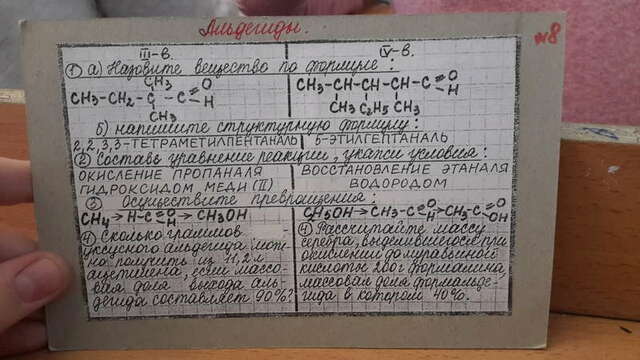 Альдегиды.
№8
III-в.
IV-в.
① а) Назовите вещество по формуле:
CH₃
CH₃-CH₂-C-C=O
H
CH₃
CH₃-CH-CH-CH-C=O
H
CH₃ C₂H₅ CH₃
б) напишите структурную формулу:
2,2,3,3-ТЕТРАМЕТИЛПЕНТАНАЛЬ
5-ЭТИЛГЕПТАНАЛЬ
② Составь уравнение реакции, укажи условия:
ОКИСЛЕНИЕ ПРОПАНАЛЯ
ГИДРОКСИДОМ МЕДИ (II)
ВОССТАНОВЛЕНИЕ ЭТАНАЛЯ
ВОДОРОДОМ
③ Осуществите превращения:
CH₄→H-C=O H→CH₃OH
C₂H₅OH→CH₃-C=O H→CH₃-C=O OH
④ Сколько граммов
уксусного альдегида мож-
но получить из 11,2 л
ацетилена, если массо-
вая доля выхода аль-
дегида составляет 90%?
④ Рассчитайте массу
серебра, выделившегося при
окислении до муравьиной
кислоты 200г формалина,
массовая доля формальде-
гида в котором 40%.